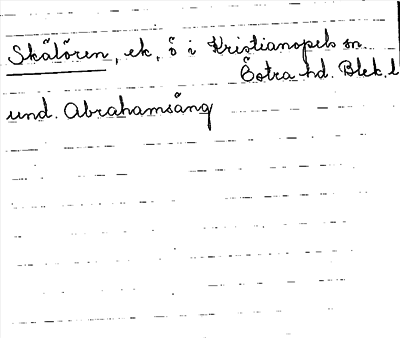 Skålören, ek, ö i Kristianopels sn.
Östra hd. Blek. l
und. Abrahamsäng